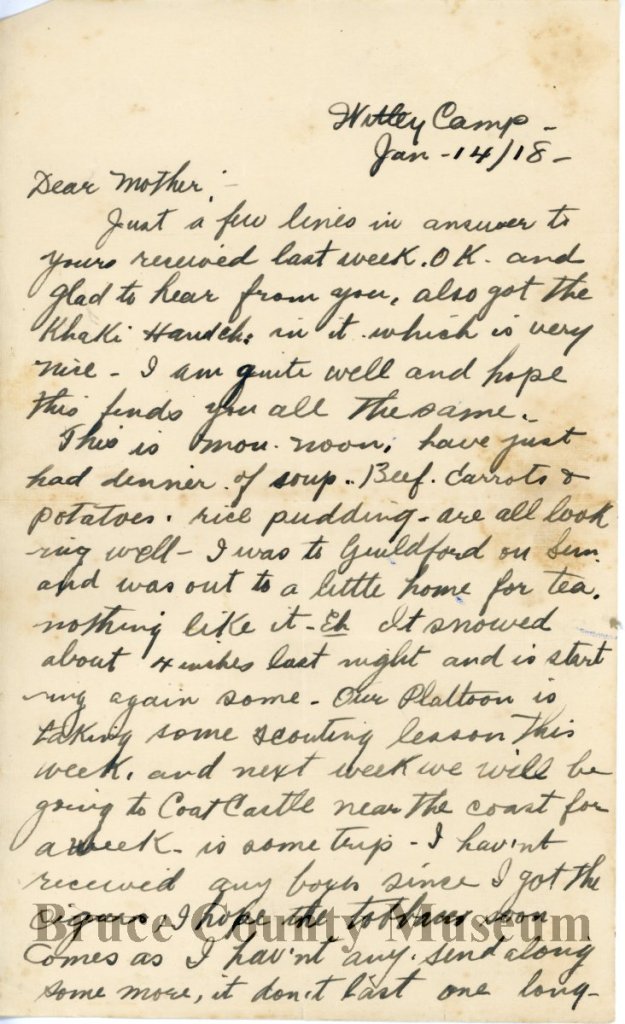 Witley Camp -
Jan - 14/18 -
Dear Mother:-
Just a few lines in answer to
yours received last week. OK. and
glad to hear from you, also got the
Khaki Handch: in it which is very
nice - I am quite well and hope
this finds you all the same.
This is Mon. noon, have just
had dinner of soup. Beef. Carrots &
potatoes. rice pudding - are all look
ing well - I was to Guildford on Sun.
and was out to a little home for tea.
nothing like it - Eh It snowed
about 4 inches last night and is start
ing again some - Our Plattoon is
taking some scouting lesson this
week, and next week we will be
going to Coat Castle near the coast for
a week - is some trip - I hav'nt
received any boxes since I got the
cigars, I hope the tobbaco soon
comes as I hav'nt any. send along
some more, it don't last one long -
Bruce County Museum